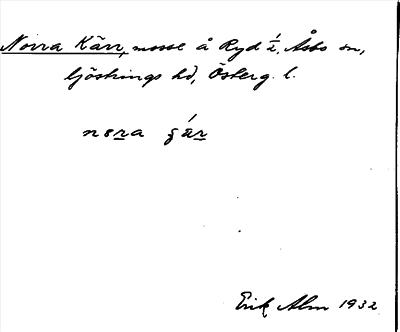 Norra Kärr, mosse å Ryd i Åsbo sn,
Göstrings hd, Österg. l.
nɷra çär
Erik Alm 1932